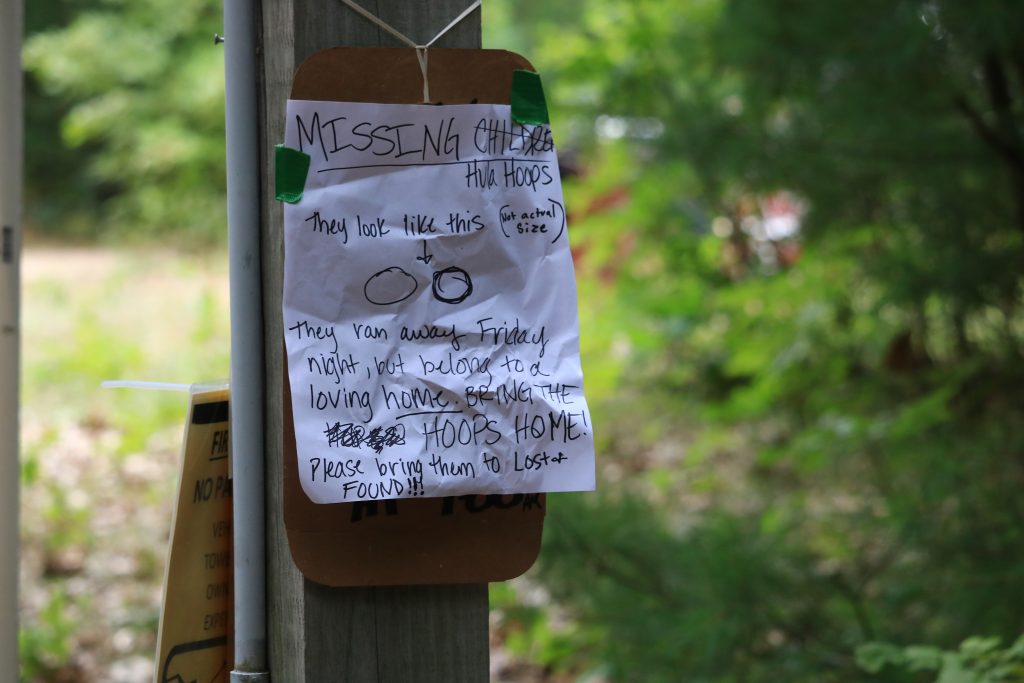 MISSING CHILDREN
Hula Hoops
They look like this (Not actual size)
They ran away Friday
night, but belong to a
loving home. BRING THE
HOOPS HOME!
Please bring them to Lost &
FOUND!!!
FIR
NO PA
VEH
TOWE
OWN
EXPE